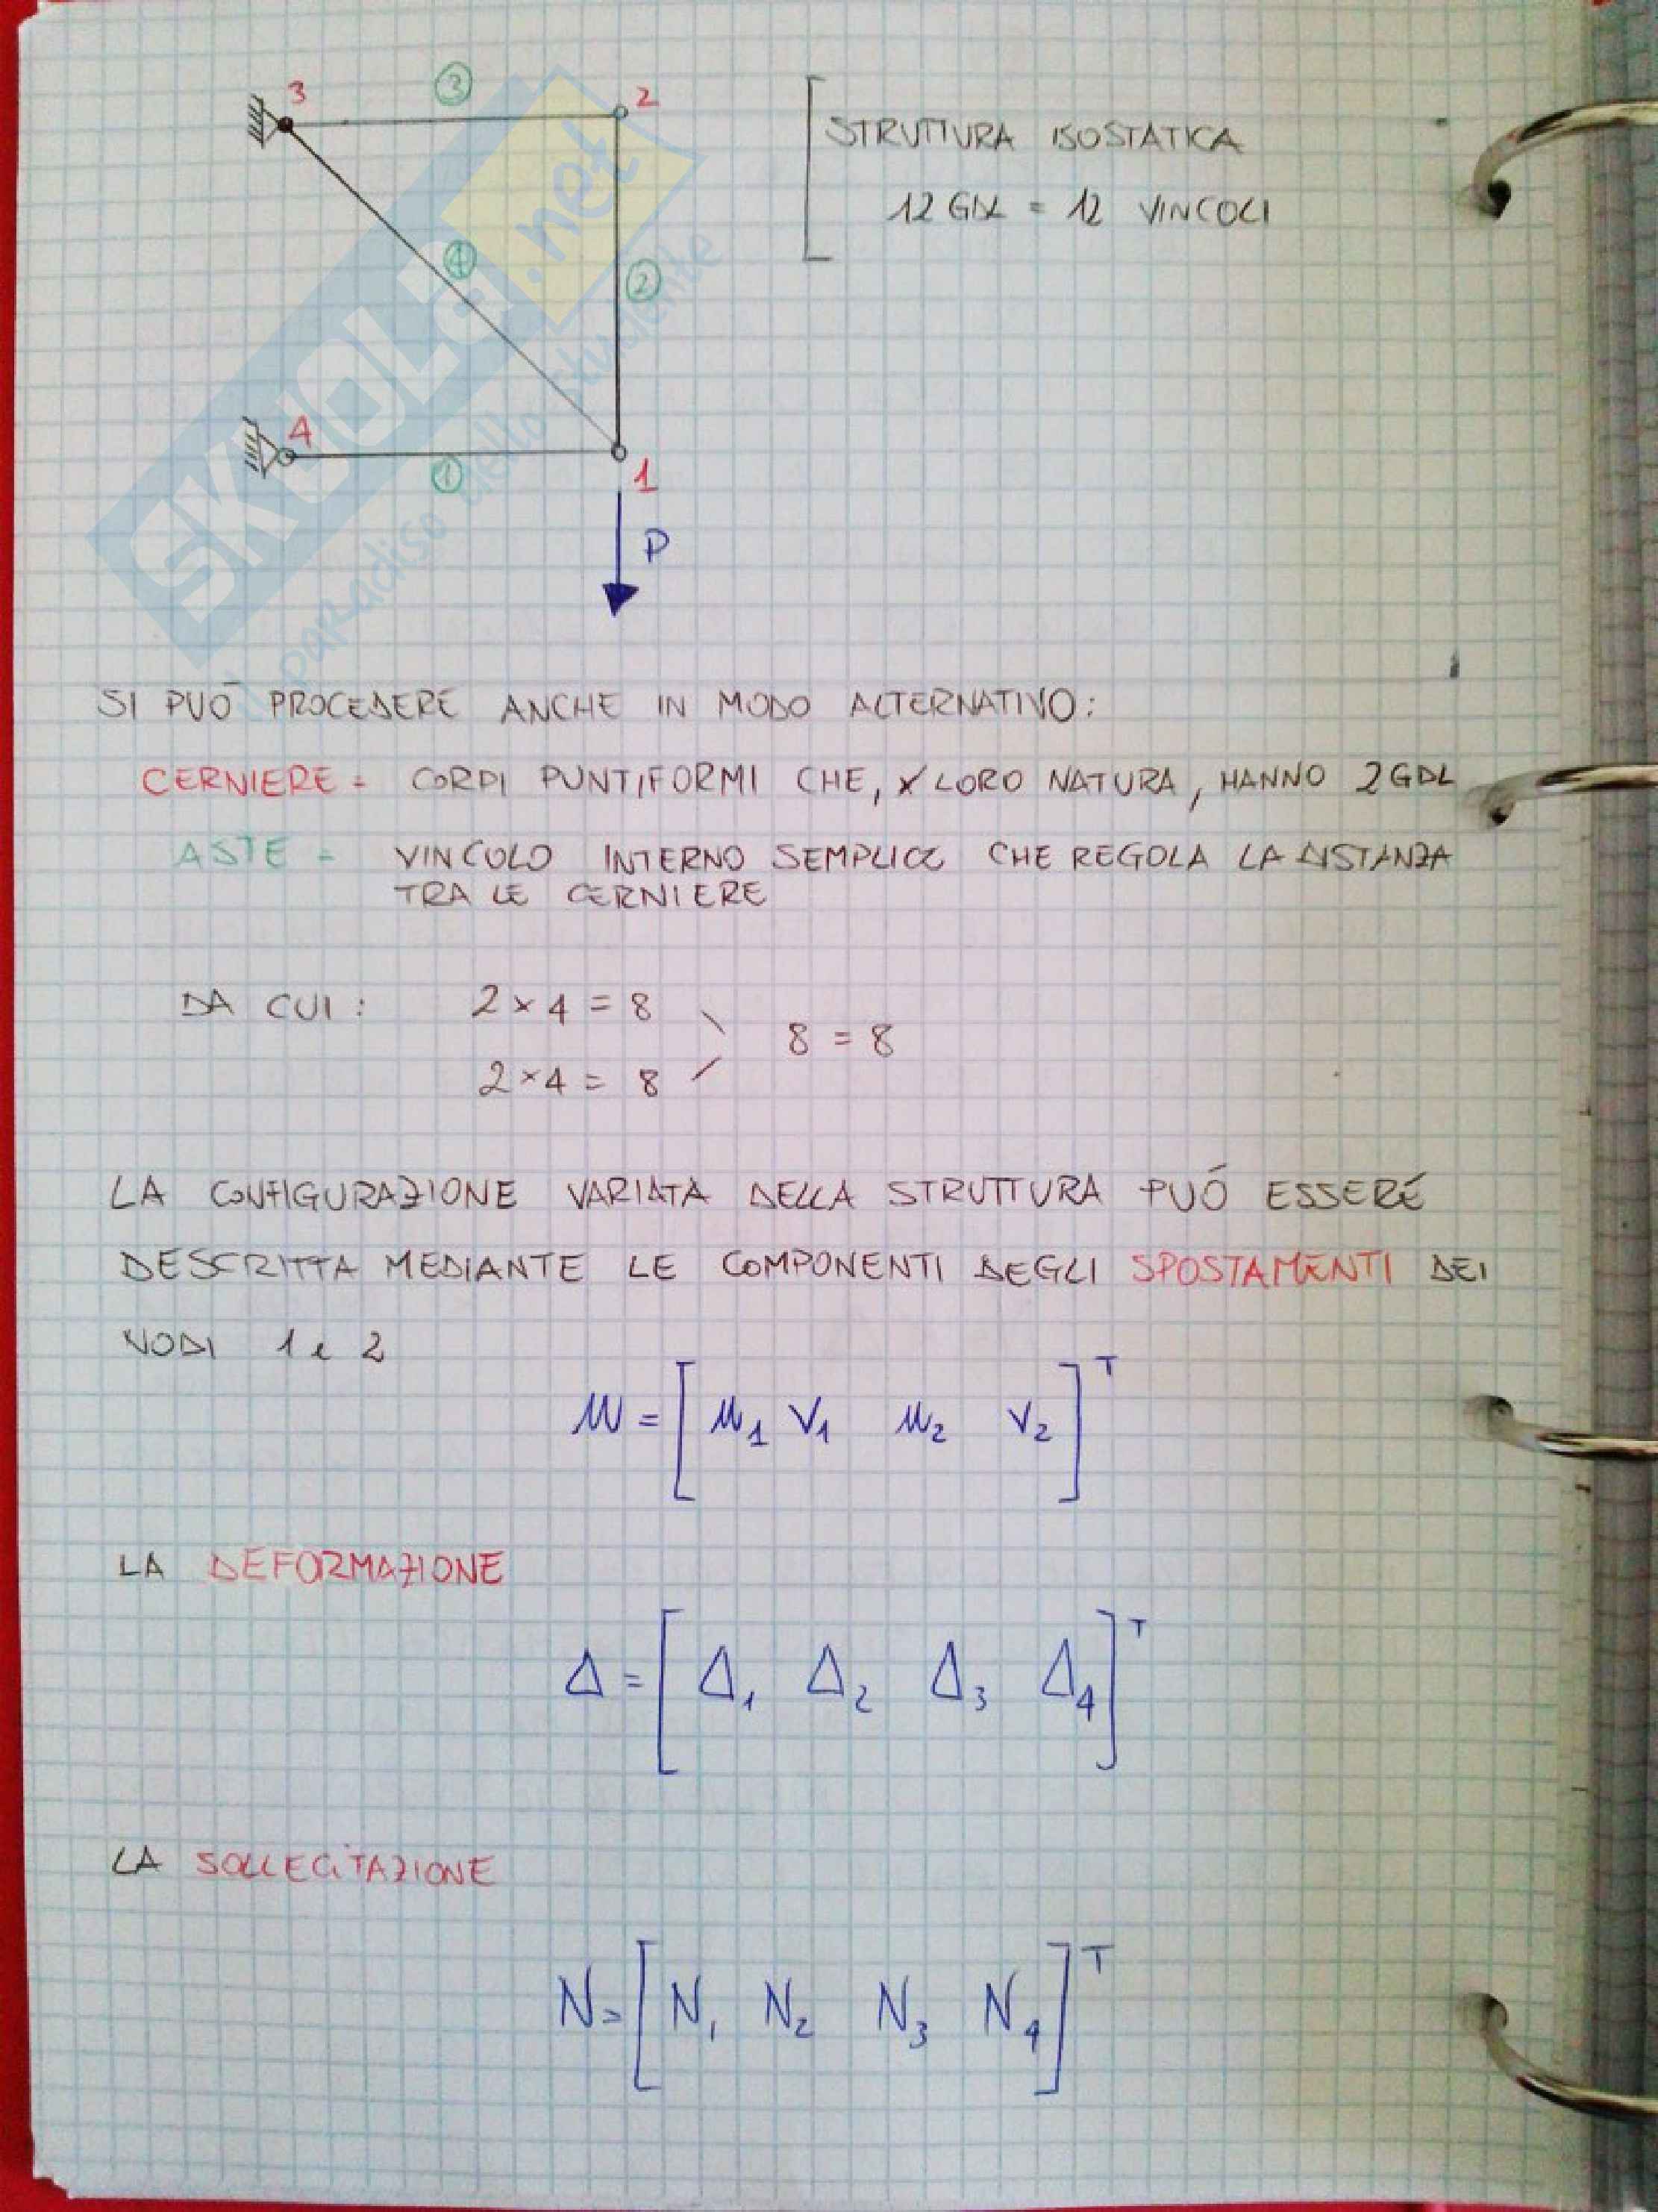 3
③
2
STRUTTURA ISOSTATICA
12 GDL = 12 VINCOLI
④
②
4
①
1
P
SKUOLA.net
paradiso dello studente
SI PUÒ PROCEDERE ANCHE IN MODO ALTERNATIVO:
CERNIERE = CORPI PUNTIFORMI CHE, x LORO NATURA, HANNO 2 GDL
ASTE = VINCOLO INTERNO SEMPLICE CHE REGOLA LA DISTANZA
TRA LE CERNIERE
DA CUI: 2 × 4 = 8
8 = 8
2 × 4 = 8
LA CONFIGURAZIONE VARIATA DELLA STRUTTURA PUÒ ESSERE
DESCRITTA MEDIANTE LE COMPONENTI DEGLI SPOSTAMENTI DEI
NODI 1 e 2
u = [ u₁ v₁ u₂ v₂ ]ᵀ
LA DEFORMAZIONE
Δ = [ Δ₁ Δ₂ Δ₃ Δ₄ ]ᵀ
LA SOLLECITAZIONE
N = [ N₁ N₂ N₃ N₄ ]ᵀ